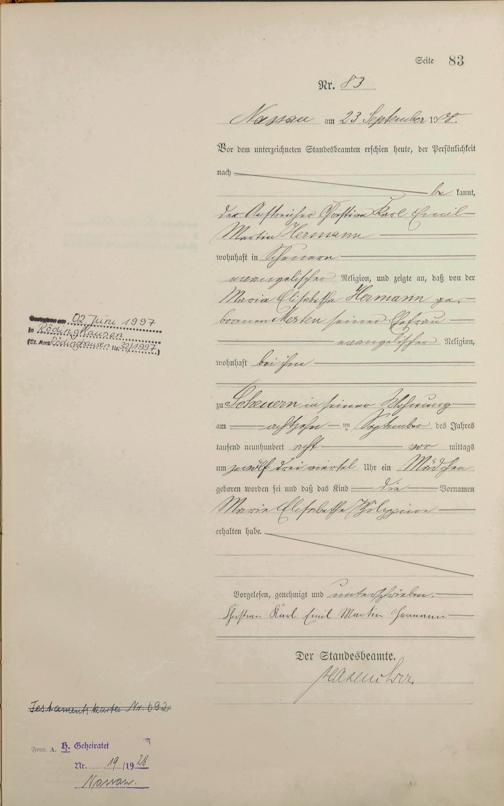 Seite 83
Nr. 83
Nassau am 23 September 1908.
Vor dem unterzeichneten Standesbeamten erschien heute, der Persönlichkeit
nach
be kannt,
der Anstreicher Christian Karl Emil
Martin Hermann
wohnhaft in Scheuern
evangelischer Religion, und zeigte an, daß von der
Maria Elisabetha Hermann ge-
borenen Merten seiner Ehefrau
evangelischer Religion,
wohnhaft bei ihm
zu Scheuern in seiner Wohnung
am achtzehn ten September des Jahres
tausend neunhundert acht vor mittags
um zwölf drei viertel Uhr ein Mädchen
geboren worden sei und daß das Kind die Vornamen
Marie Elisabetha Philippine
erhalten habe.
Vorgelesen, genehmigt und unterschrieben.
Christian Karl Emil Martin Hermann
Der Standesbeamte.
02. Juni 1997
in Rödinghausen
(St. Amt Rödinghausen Nr. 9/1997)
Testamentskartei Nr. 692
H. Geheiratet
Nr. 19/1928
Nassau.